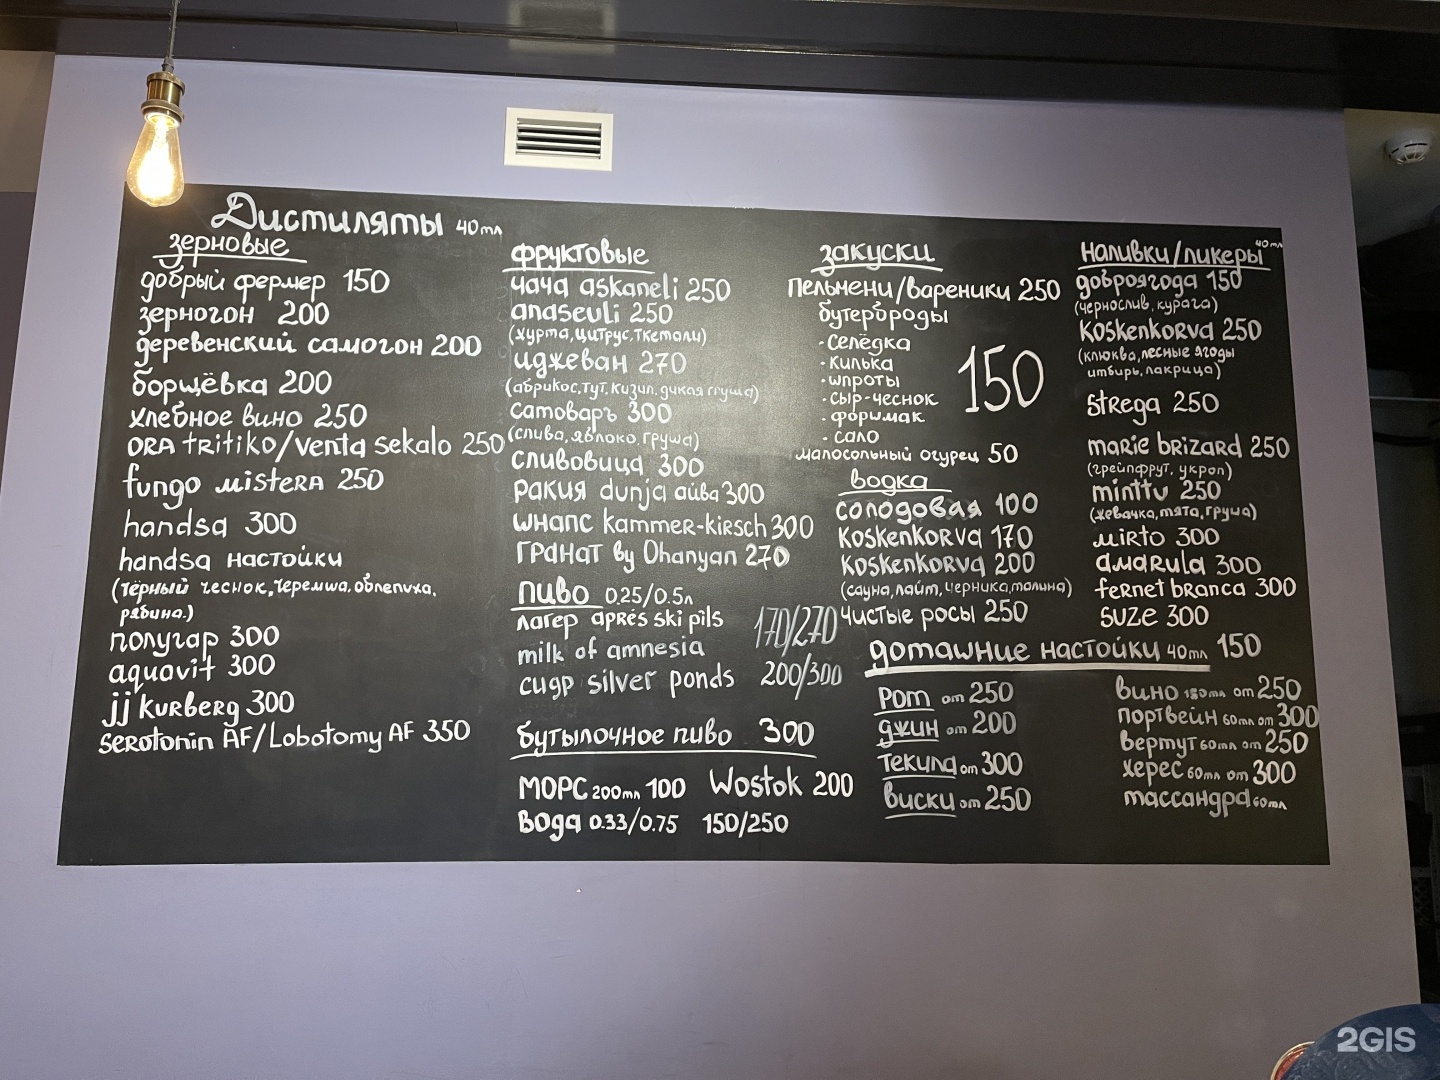 Дистиляты 40мл
зерновые
добрый фермер 150
зерногон 200
деревенский самогон 200
борщёвка 200
хлебное вино 250
ORA tritiko/venta sekalo 250
fungo мistera 250
handsa 300
handsa настойки
(тёрный чеснок, черемша, облепиха,
рябина.)
полугар 300
aquavit 300
jj kurberg 300
serotonin AF/Lobotomy AF 350
фруктовые
чача askaneli 250
anaseuli 250
(хурма, цитрус, ткемали)
иджеван 270
(абрикос, тут, кизил, дикая груша)
самоваръ 300
(слива, яблоко, груша)
сливовица 300
ракия dunja айва 300
шнапс kammer-kirsch 300
гранат by Ohanyan 270
пиво 0.25/0.5л
лагер après ski pils 170/270
milk of amnesia
сидр silver ponds 200/300
бутылочное пиво 300
морс 200мл 100 Wostok 200
вода 0.33/0.75 150/250
закуски
пельмени/вареники 250
бутерброды
·селёдка
·килька
·шпроты
·сыр-чеснок
·форшмак
·сало
150
малосольный огурец 50
водка
солодовая 100
Koskenkorva 170
Koskenkorva 200
(сауна, лайм, черника, малина)
чистые росы 250
домашние настойки 40мл 150
ром от 250
джин от 200
текила от 300
виски от 250
наливки/ликеры 40мл
доброягода 150
(чернослив, курага)
Koskenkorva 250
(клюква, лесные ягоды
имбирь, лакрица)
strega 250
marie brizard 250
(грейпфрут, укроп)
minttu 250
(жевачка, мята, груша)
мirto 300
amarula 300
fernet branca 300
suze 300
вино 150мл от 250
портвейн 60мл от 300
вермут 60мл от 250
херес 60мл от 300
массандра 60мл
2GIS